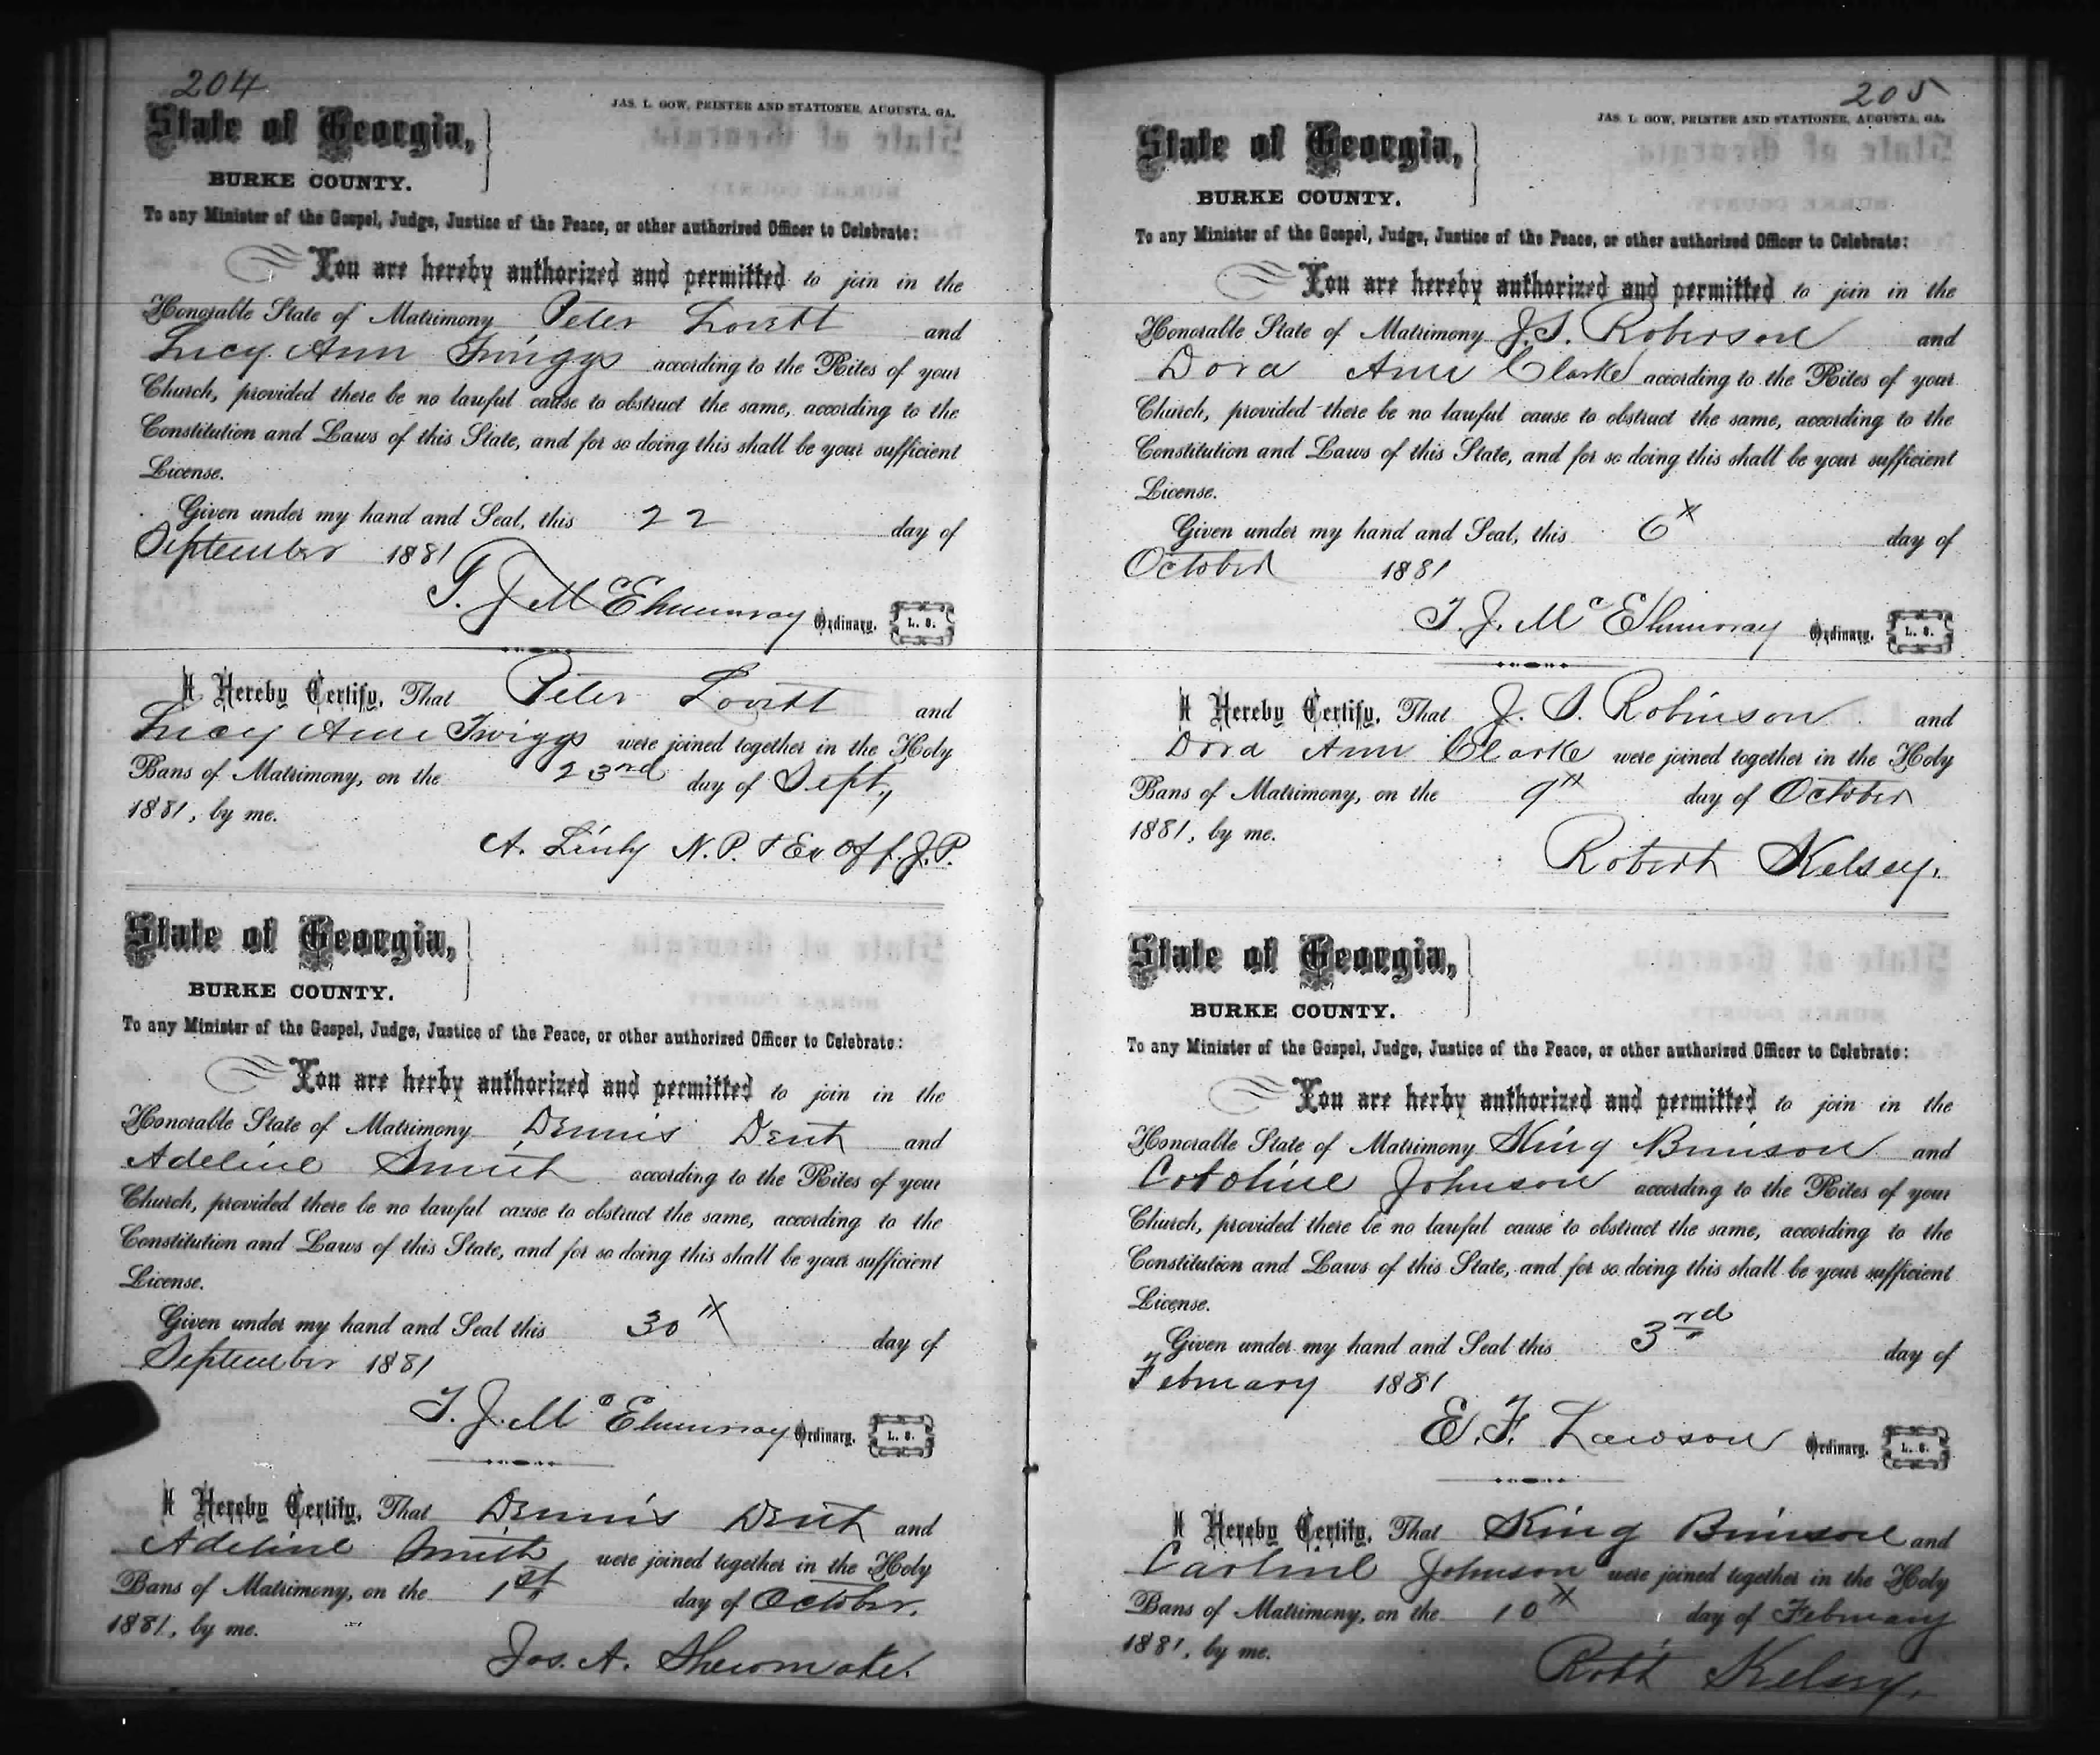 204
JAS. L. GOW, PRINTER AND STATIONER, AUGUSTA, GA.
State of Georgia,
BURKE COUNTY.
To any Minister of the Gospel, Judge, Justice of the Peace, or other authorized Officer to Celebrate:
You are hereby authorized and permitted to join in the
Honorable State of Matrimony Peter Lovett and
Lucy Ann Twiggs according to the Rites of your
Church, provided there be no lawful cause to obstruct the same, according to the
Constitution and Laws of this State, and for so doing this shall be your sufficient
License.
Given under my hand and Seal, this 22 day of
September 1881
T. J. McElmurray Ordinary. L. S.
I Hereby Certify, That Peter Lovett and
Lucy Ann Twiggs were joined together in the Holy
Bans of Matrimony, on the 23rd day of Sept,
1881, by me.
A. Linly N.P. & Ex Off. J.P.
State of Georgia,
BURKE COUNTY.
To any Minister of the Gospel, Judge, Justice of the Peace, or other authorized Officer to Celebrate:
You are herby authorized and permitted to join in the
Honorable State of Matrimony Dennis Dent and
Adeline Smith according to the Rites of your
Church, provided there be no lawful cause to obstruct the same, according to the
Constitution and Laws of this State, and for so doing this shall be your sufficient
License.
Given under my hand and Seal this 30th day of
September 1881
T. J. McElmurray Ordinary. L. S.
I Hereby Certify, That Dennis Dent and
Adeline Smith were joined together in the Holy
Bans of Matrimony, on the 1st day of October.
1881, by me.
Jos. A. Shewmake.
205
JAS. L. GOW, PRINTER AND STATIONER, AUGUSTA, GA.
State of Georgia,
BURKE COUNTY.
To any Minister of the Gospel, Judge, Justice of the Peace, or other authorized Officer to Celebrate:
You are hereby authorized and permitted to join in the
Honorable State of Matrimony J. S. Roberson and
Dora Ann Clarke according to the Rites of your
Church, provided there be no lawful cause to obstruct the same, according to the
Constitution and Laws of this State, and for so doing this shall be your sufficient
License.
Given under my hand and Seal, this 6th day of
October 1881
T. J. McElmurray Ordinary. L. S.
I Hereby Certify, That J. S. Robinson and
Dora Ann Clarke were joined together in the Holy
Bans of Matrimony, on the 9th day of October
1881, by me.
Robert Kelsey.
State of Georgia,
BURKE COUNTY.
To any Minister of the Gospel, Judge, Justice of the Peace, or other authorized Officer to Celebrate:
You are herby authorized and permitted to join in the
Honorable State of Matrimony King Brinson and
Caroline Johnson according to the Rites of your
Church, provided there be no lawful cause to obstruct the same, according to the
Constitution and Laws of this State, and for so doing this shall be your sufficient
License.
Given under my hand and Seal this 3rd day of
February 1881
E. F. Lawson Ordinary. L. S.
I Hereby Certify, That King Brinson and
Caroline Johnson were joined together in the Holy
Bans of Matrimony, on the 10th day of February
1881, by me.
Robt Kelsey.